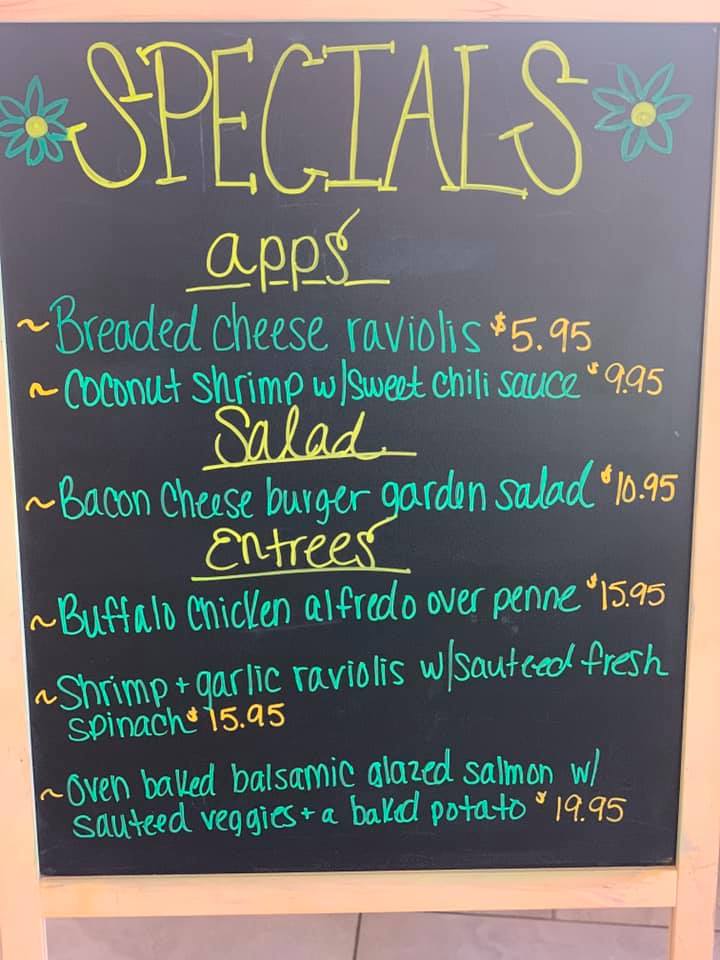 SPECIALS
apps
~Breaded cheese raviolis $5.95
~Coconut shrimp w/sweet chili sauce $9.95
Salad
~Bacon Cheese burger garden salad $10.95
Entrees
~Buffalo Chicken alfredo over penne $15.95
~Shrimp + garlic raviolis w/sauteed fresh
spinach $15.95
~Oven baked balsamic glazed salmon w/
sauteed veggies + a baked potato $19.95